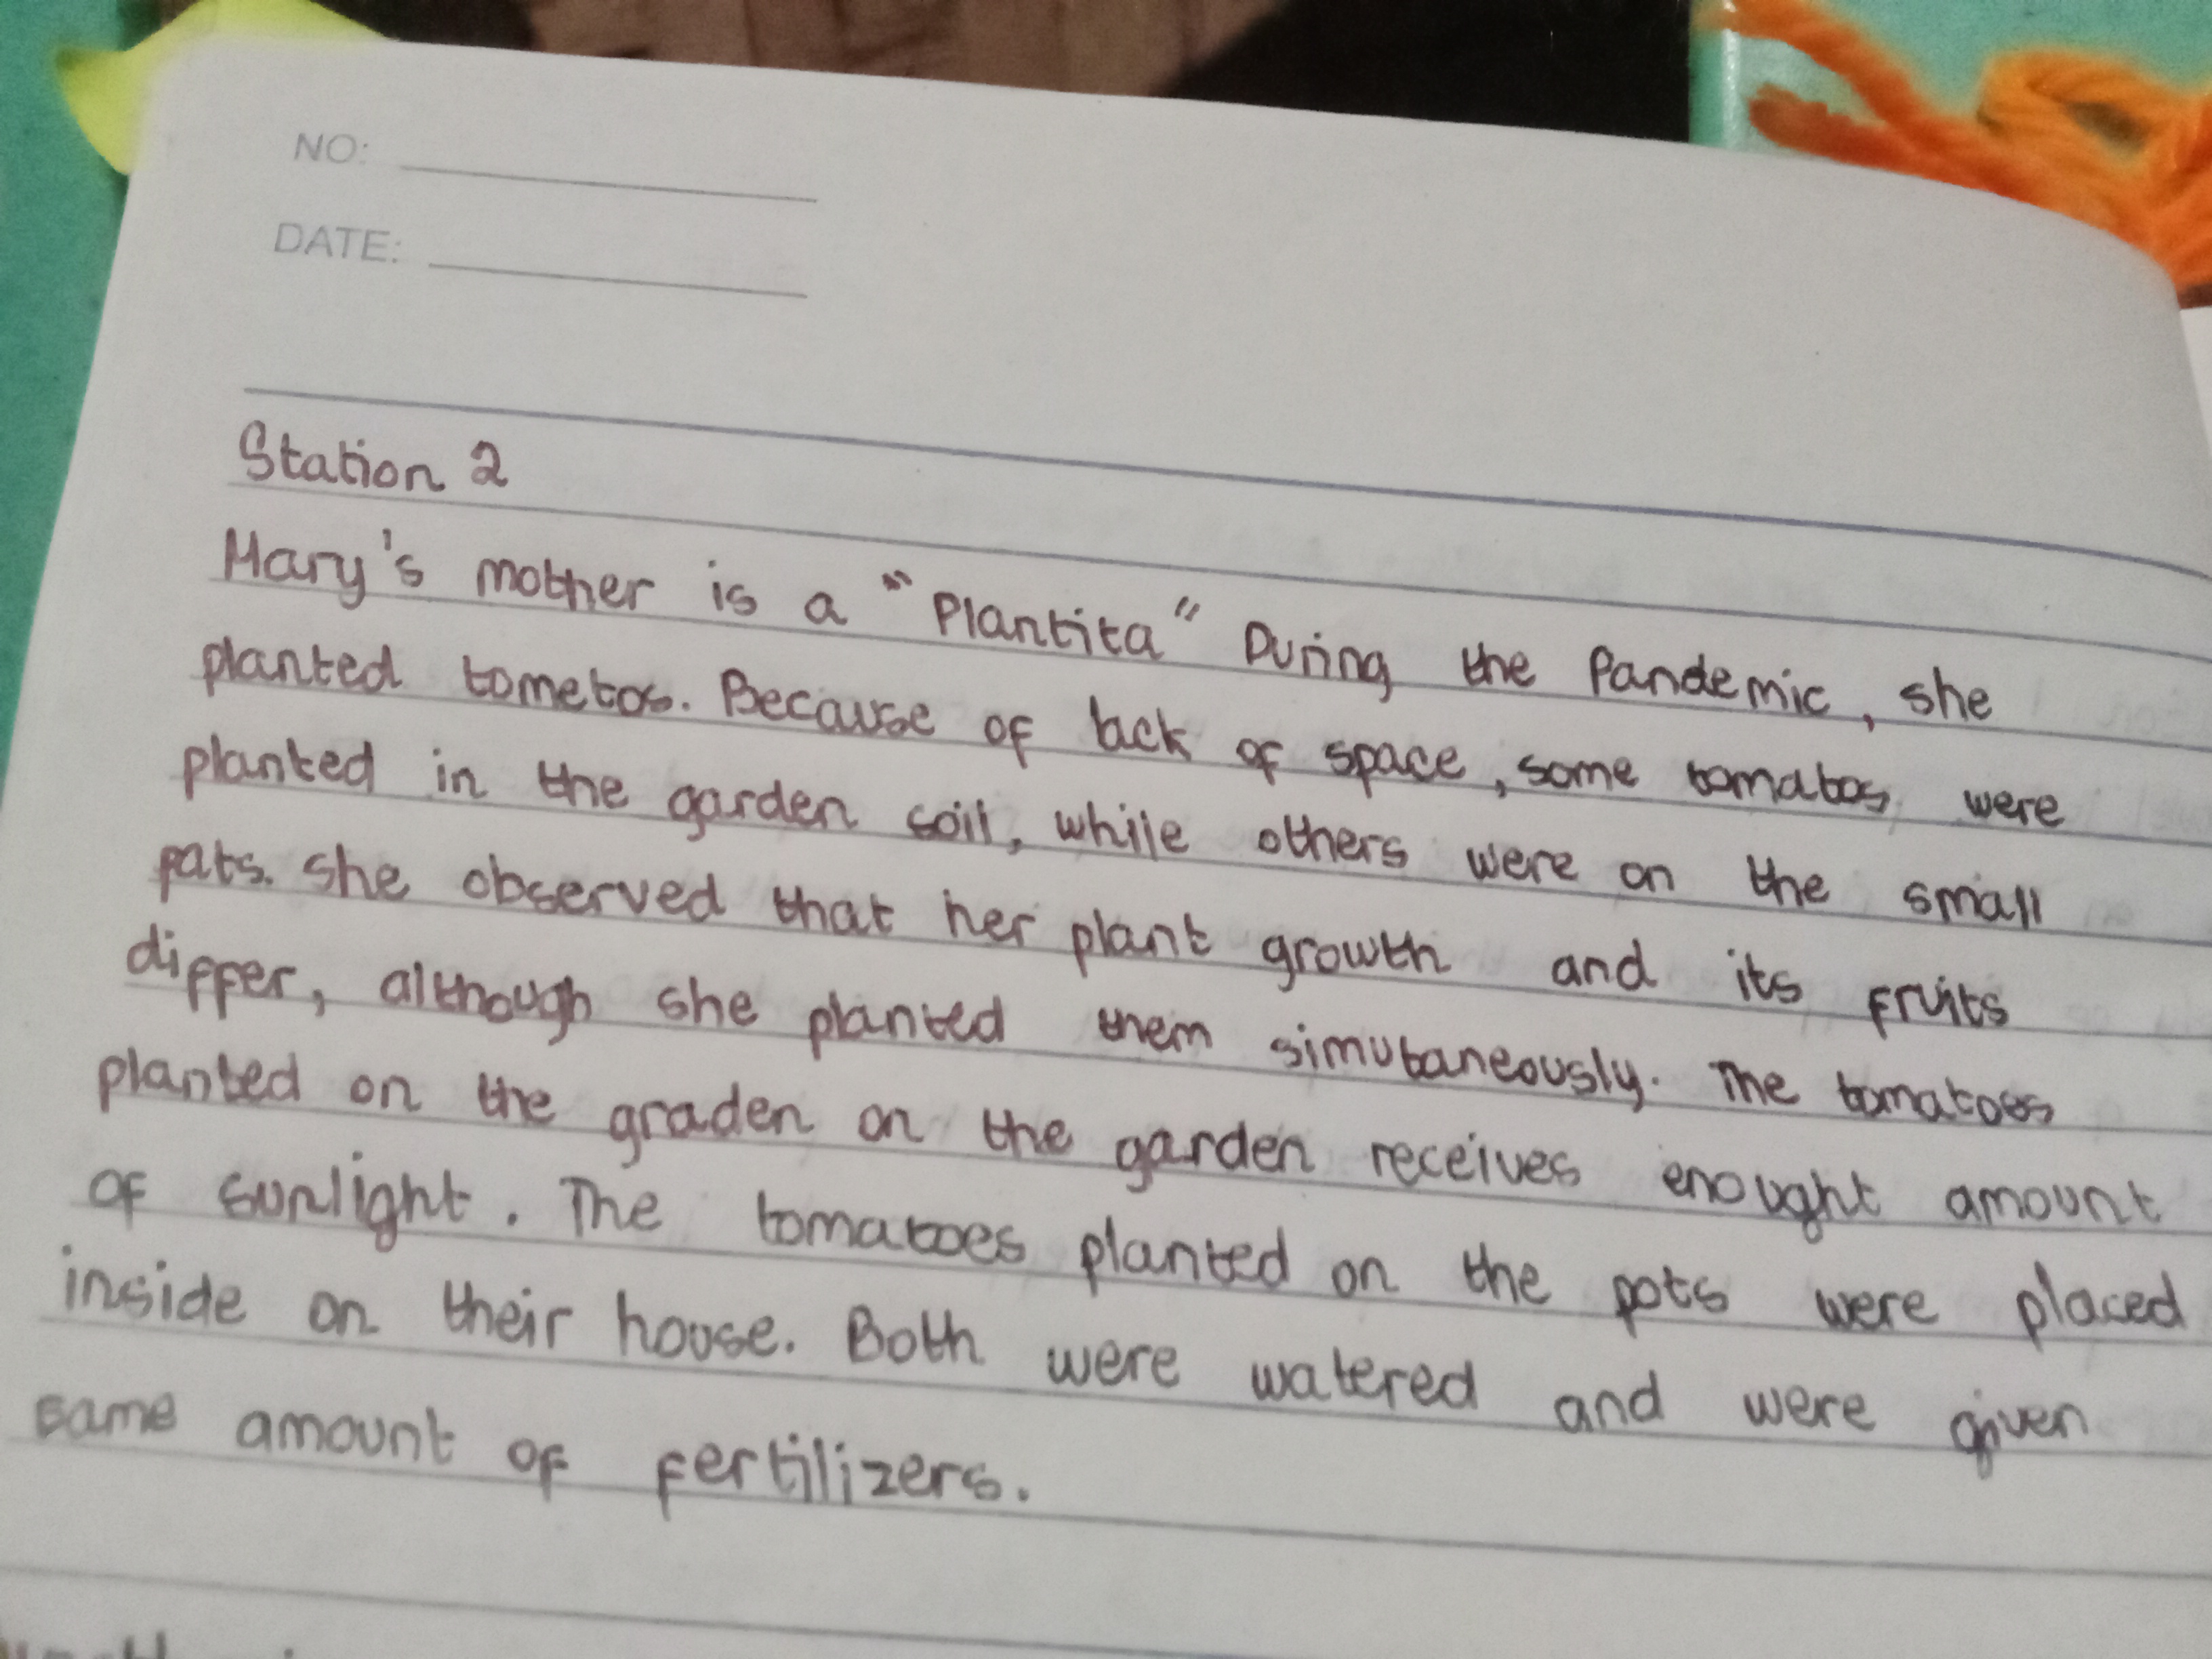 NO:
DATE:
Station 2
Mary's mother is a "Plantita" During the Pandemic, she
planted tometos. Because of lack of space, some tomatos were
planted in the garden soil, while others were on the small
pats. She observed that her plant growth and its fruits
differ, although she planted them simutaneously. The tomatoes
planted on the graden on the garden receives enought amount
of sunlight. The tomatoes planted on the pots were placed
inside on their house. Both were watered and were given
same amount of fertilizers.